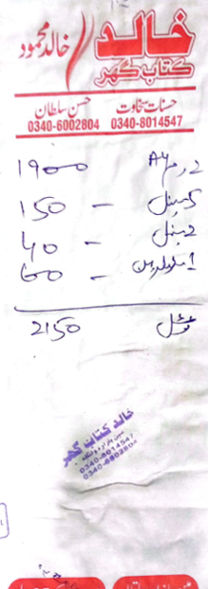 خالد
خالد محمود
کتاب گھر
حسن سلطان حسنات سخاوت
0340-6002804 0340-8014547
2 رم A4 1900
5 پنسل - 150
2 پنسل - 40
1 - 60
ٹوٹل 2150
خالد کتاب گھر
0340-8014547
0340-6002804